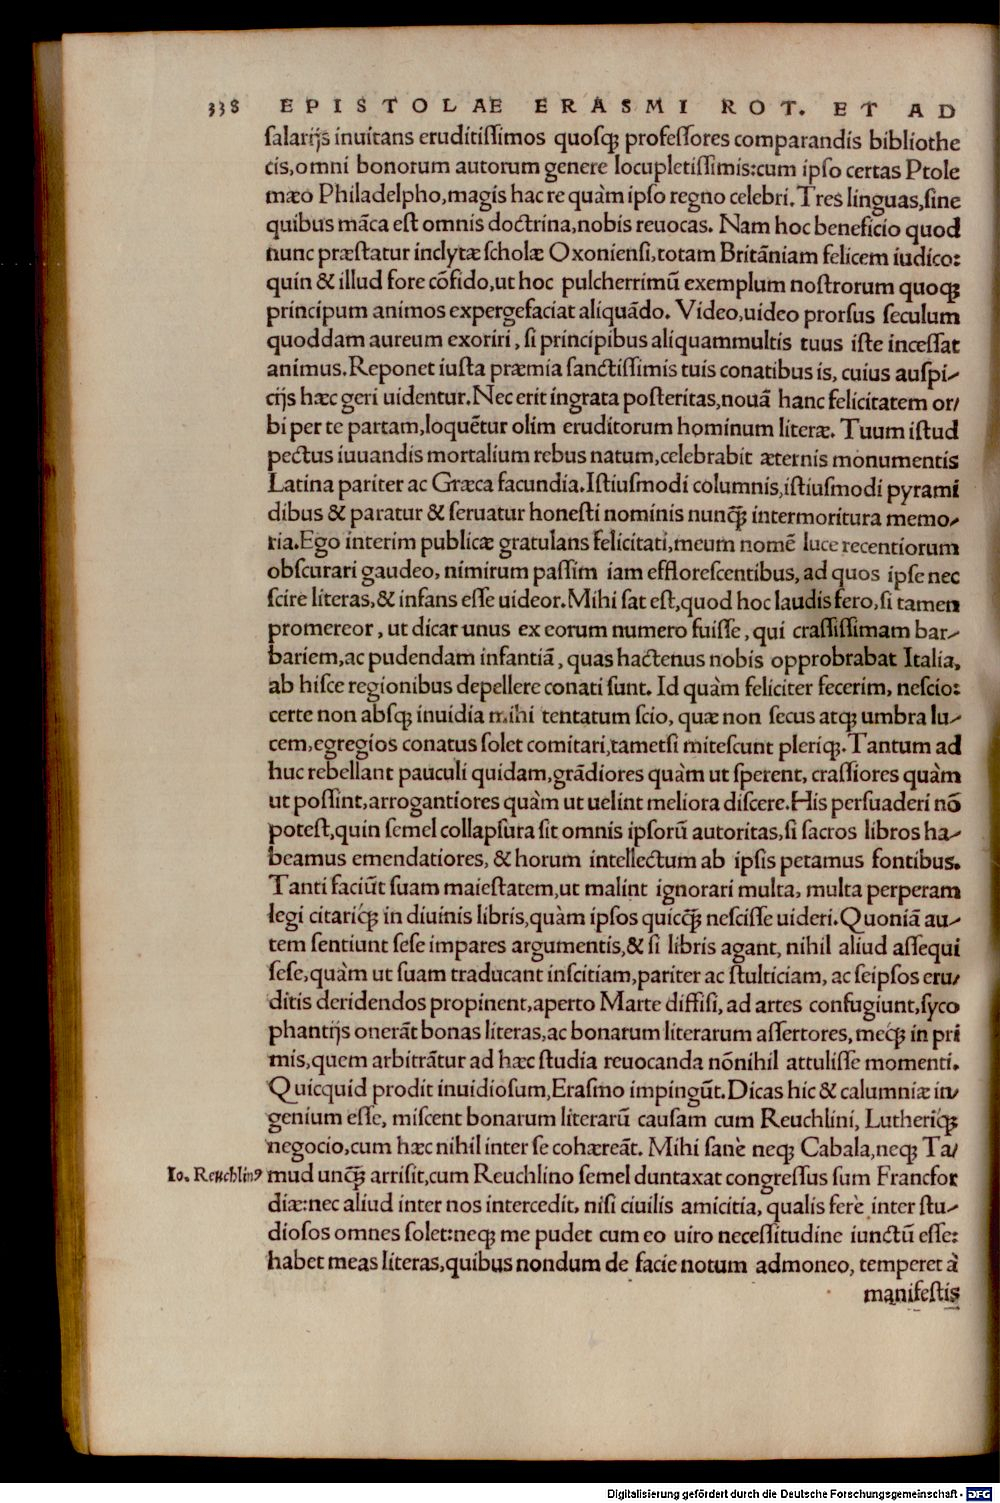 338 EPISTOLAE ERASMI ROT. ET AD
ſalarijs inuitans eruditiſſimos quoſq; profeſſores comparandis bibliothe
cis,omni bonorum autorum genere locupletiſſimis:cum ipſo certas Ptole
mæo Philadelpho,magis hac re quàm ipſo regno celebri. Tres linguas,ſine
quibus mãca eſt omnis doctrina,nobis reuocas. Nam hoc beneficio quod
nunc præſtatur inclytæ ſcholæ Oxonienſi,totam Britãniam felicem iudico:
quin & illud fore cõfido,ut hoc pulcherrimũ exemplum noſtrorum quoq;
principum animos expergefaciat aliquãdo. Video,uideo prorſus ſeculum
quoddam aureum exoriri, ſi principibus aliquammultis tuus iſte inceſſat
animus.Reponet iuſta præmia ſanctiſſimis tuis conatibus is, cuius auſpi-
cijs hæc geri uidentur.Nec erit ingrata poſteritas,nouã hanc felicitatem or-
bi per te partam,loquẽtur olim eruditorum hominum literæ. Tuum iſtud
pectus iuuandis mortalium rebus natum,celebrabit æternis monumentis
Latina pariter ac Græca facundia.Iſtiuſmodi columnis,iſtiuſmodi pyrami
dibus & paratur & ſeruatur honeſti nominis nunq̃; intermoritura memo-
ria.Ego interim publicæ gratulans felicitati,meum nomẽ luce recentiorum
obſcurari gaudeo, nimirum paſſim iam effloreſcentibus, ad quos ipſe nec
ſcire literas,& infans eſſe uideor.Mihi ſat eſt,quod hoc laudis fero,ſi tamen
promereor, ut dicar unus ex eorum numero fuiſſe, qui craſſiſſimam bar-
bariem,ac pudendam infantiã, quas hactenus nobis opprobrabat Italia,
ab hiſce regionibus depellere conati ſunt. Id quàm feliciter fecerim, neſcio:
certe non abſq; inuidia mihi tentatum ſcio, quæ non ſecus atq; umbra lu-
cem,egregios conatus ſolet comitari,tametſi miteſcunt pleriq;. Tantum ad
huc rebellant pauculi quidam,grãdiores quàm ut ſperent, craſſiores quàm
ut poſſint,arrogantiores quàm ut uelint meliora diſcere.His perſuaderi nõ
poteſt,quin ſemel collapſura ſit omnis ipſorũ autoritas,ſi ſacros libros ha-
beamus emendatiores, & horum intellectum ab ipſis petamus fontibus.
Tanti faciũt ſuam maieſtatem,ut malint ignorari multa, multa perperam
legi citariq́; in diuinis libris,quàm ipſos quicq̃; neſciſſe uideri.Quoniã au-
tem ſentiunt ſeſe impares argumentis,& ſi libris agant, nihil aliud aſſequi
ſeſe,quàm ut ſuam traducant inſcitiam,pariter ac ſtulticiam, ac ſeipſos eru-
ditis deridendos propinent,aperto Marte diffiſi, ad artes confugiunt,ſyco
phantijs onerãt bonas literas,ac bonarum literarum aſſertores, meq́; in pri
mis,quem arbitrãtur ad hæc ſtudia reuocanda nõnihil attuliſſe momenti.
Quicquid prodit inuidioſum,Eraſmo impingũt.Dicas hic & calumniæ in-
genium eſſe, miſcent bonarum literarũ cauſam cum Reuchlini, Lutheriq́;
negocio,cum hæc nihil inter ſe cohæreãt. Mihi ſanè neq; Cabala,neq; Ta-
Io. Reuchlinꝰ
mud unq̃; arriſit,cum Reuchlino ſemel duntaxat congreſſus ſum Francfor
diæ:nec aliud inter nos intercedit, niſi ciuilis amicitia, qualis ferè inter ſtu-
dioſos omnes ſolet:neq; me pudet cum eo uiro neceſſitudine iunctũ eſſe:
habet meas literas,quibus nondum de facie notum admoneo, temperet à
manifeſtis
Digitalisierung gefördert durch die Deutsche Forschungsgemeinschaft - DFG